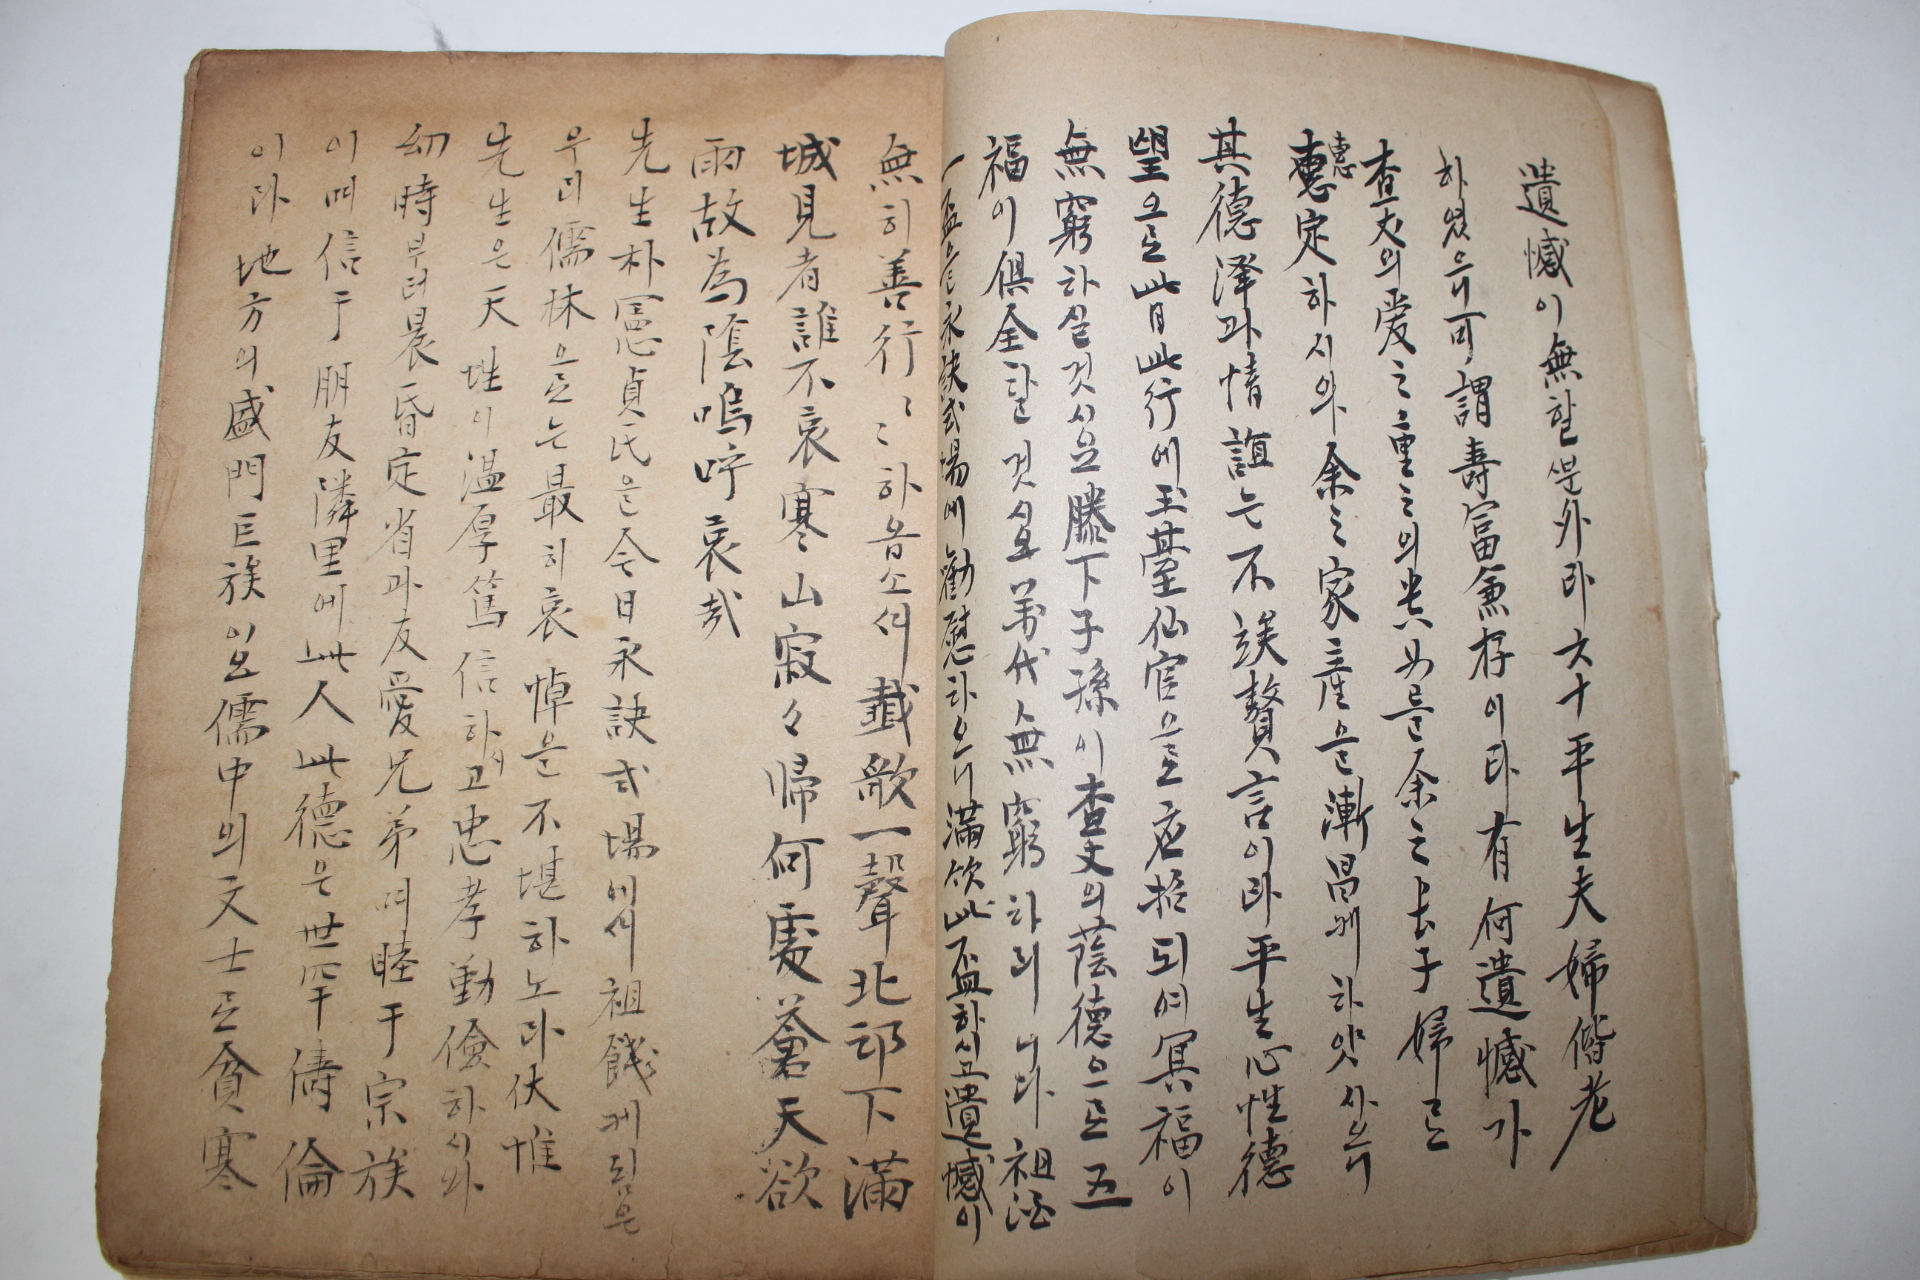 遺憾이無할뿐外라六十平生夫婦偕老
하였으니可謂壽富兼存이라有何遺憾가
查丈의爱之重之의貴女를余之長子婦로
惠
惠定하시와余之家產은漸昌케하얏사으니
其德泽과情誼는不誒贅言이라平生心性德
望으로此月此行에玉臺仙官으로召招되여冥福이
無窮하실것시요膝下子孫이查丈의蔭德으로五
福이俱全할것시요萬代無窮하리니다祖酒
一盃을永訣式場에勸慰하오니滿飮此盃하시고遺憾이
無히善行〻〻하옵소셔薤歌一聲北邙下滿
城見者誰不哀寒山寂々帰何處蒼天欲
雨故為陰嗚呼哀哉
先生朴憲貞氏은今日永訣式場에서祖餞케됨은
우리儒林으로는最히哀悼을不堪하노라伏惟
先生은天性이溫厚篤信하시고忠孝勤儉하시와
幼時부터晨昏定省과友愛兄弟며睦于宗族
이며信于朋友隣里에此人此德은世罕儔倫
이라地方의盛門巨族이요儒中의文士로貧寒